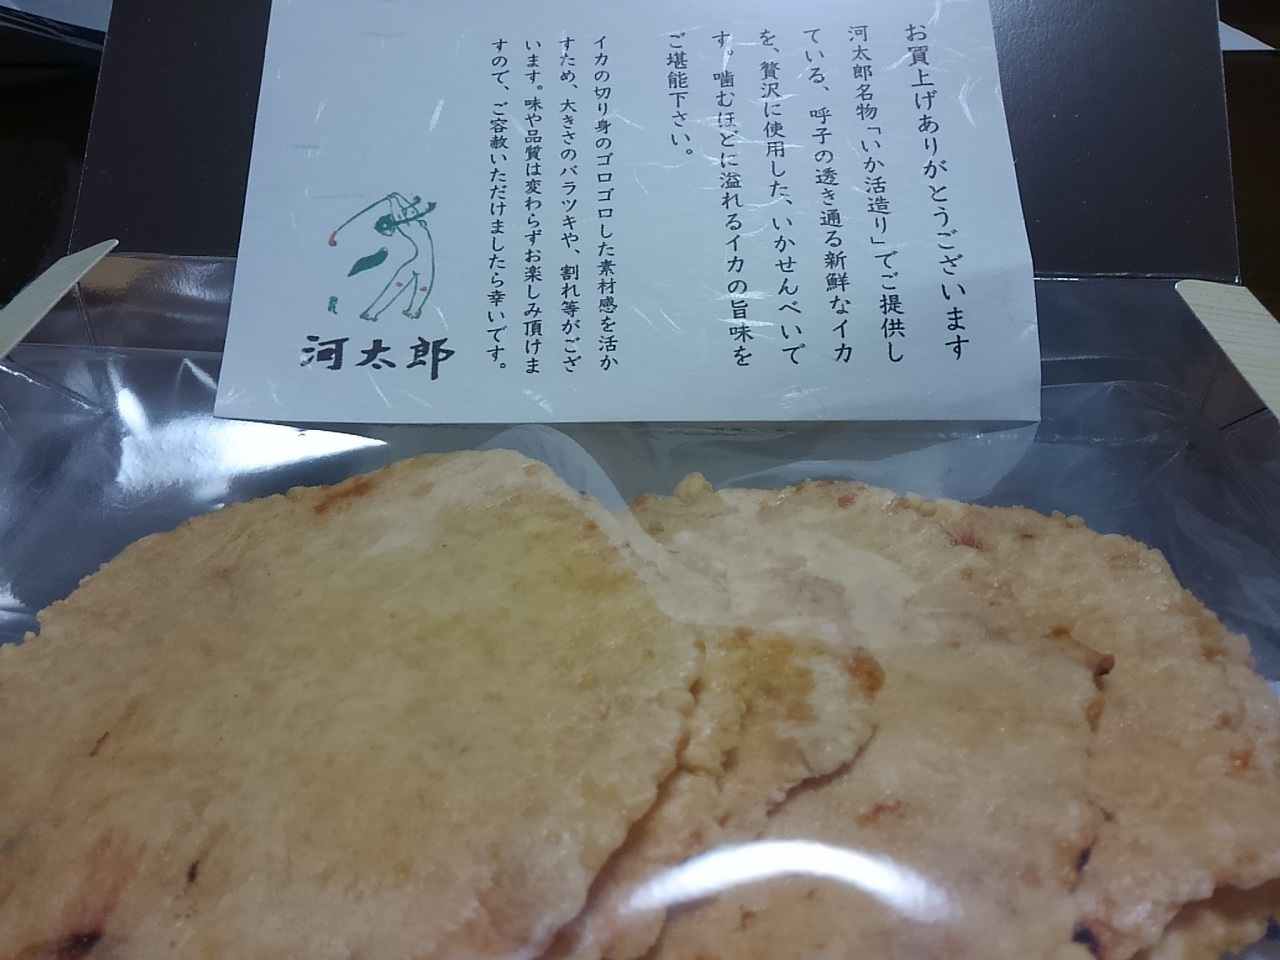 お買上げありがとうございます
河太郎名物「いか活造り」でご提供し
ている、呼子の透き通る新鮮なイカ
を、贅沢に使用した、いかせんべいで
す。噛むほどに溢れるイカの旨味を
ご堪能下さい。
イカの切り身のゴロゴロした素材感を活か
すため、大きさのバラツキや、割れ等がござ
います。味や品質は変わらずお楽しみ頂けま
すので、ご容赦いただけましたら幸いです。
河太郎